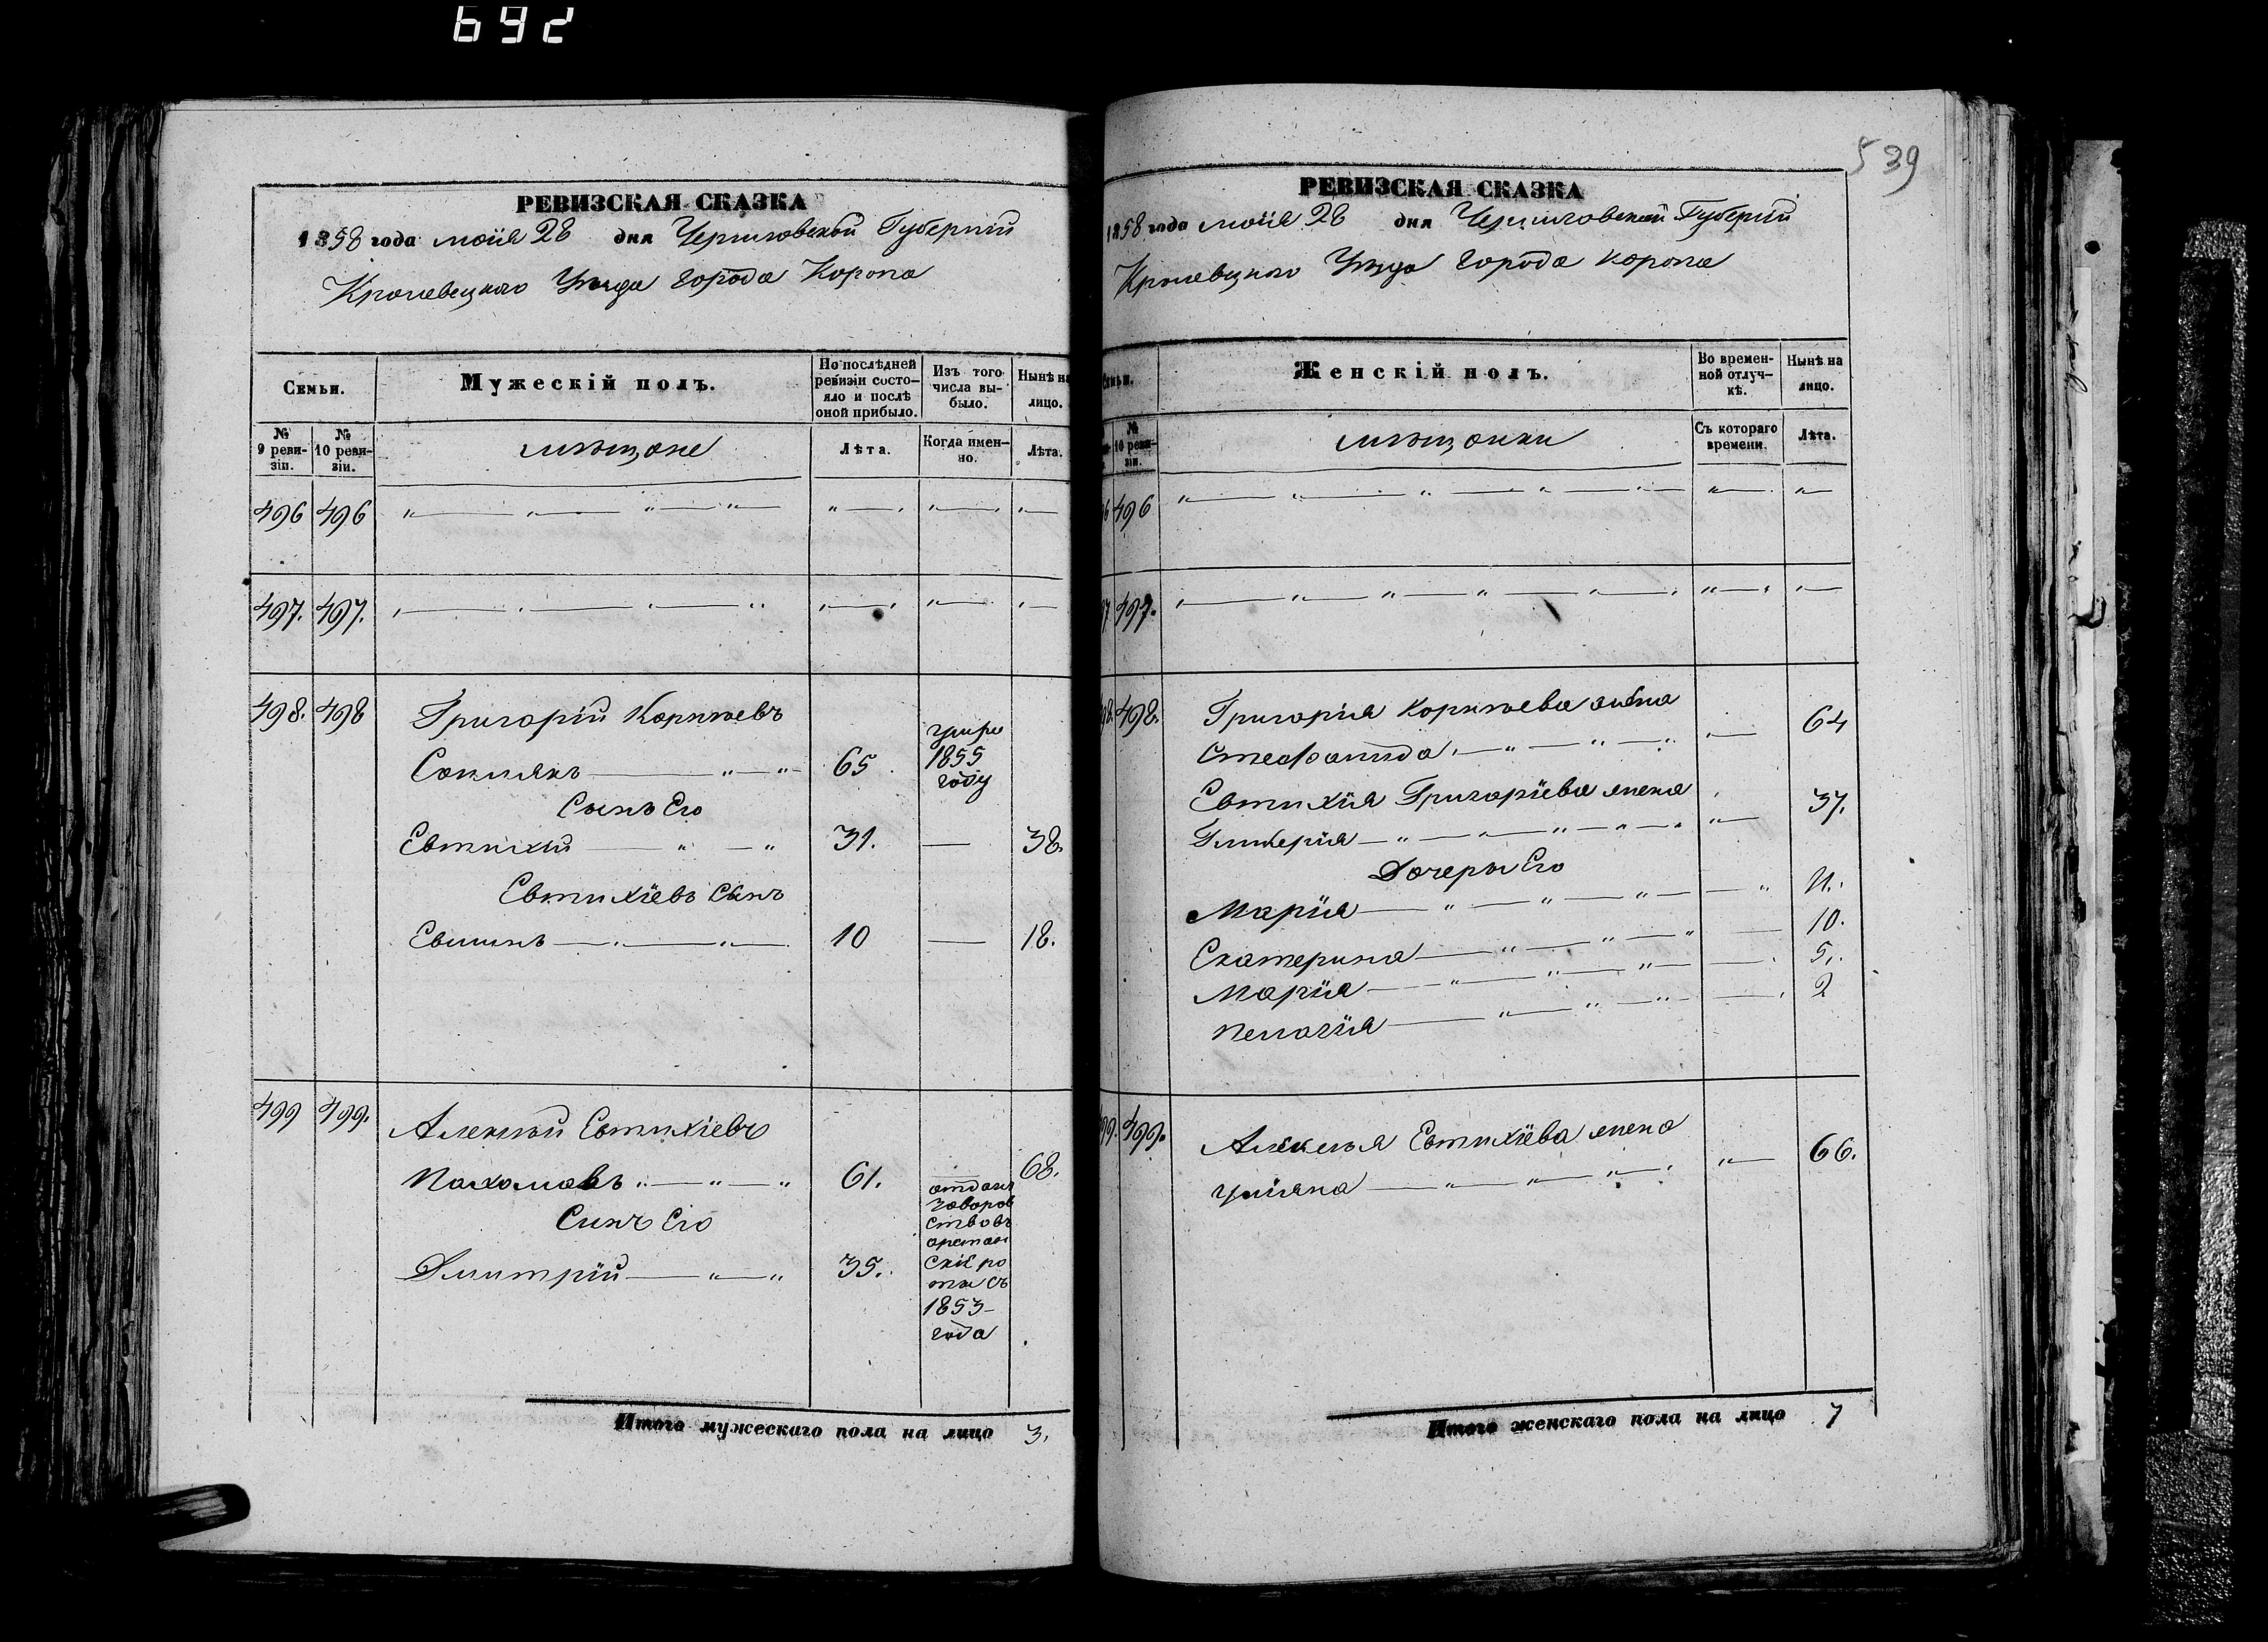 692
РЕВИЗСКАЯ СКАЗКА
1858 года маія 28 дня Черниговской Губерніи
Кролевецкаго Уѣзда города Коропа
Семьи.
Мужескій полъ.
По послѣдней ревизіи состояло и послѣ оной прибыло.
Изъ того числа выбыло.
Нынѣ на лицо.
№ 9 ревизіи.
№ 10 ревизіи.
мѣщане
Лѣта.
Когда именно.
Лѣта.
496 496
497. 497.
498. 498 Григорій Корнѣевъ
65 1855 году
Сынъ Его
Евтихій 31. — 38.
Евтихіевъ сынъ
10 — 18.
499 499. Алексѣй Евтихіевъ
Пахомовъ 61. 68.
Сынъ Его
Дмитрій 35.
1853
года
Итого мужескаго пола на лицо 3.
539
РЕВИЗСКАЯ СКАЗКА
1858 года маія 28 дня Черниговской Губерніи
Кролевецкаго Уѣзда города Коропа
Семьи.
Женскій полъ.
Во временной отлучкѣ.
Нынѣ на лицо.
№ 10 ревизіи.
мѣщанки
Съ котораго времени.
Лѣта.
496
497.
498. Григорія Корнѣева жена
64
Евтихія Григоріева жена
Гликерія 37.
Дочеры Его
Марія 11.
Екатерина 10.
Марія 5.
Пелагія 2
499. Алексѣя Евтихіева жена
Уліяна 66.
Итого женскаго пола на лицо 7